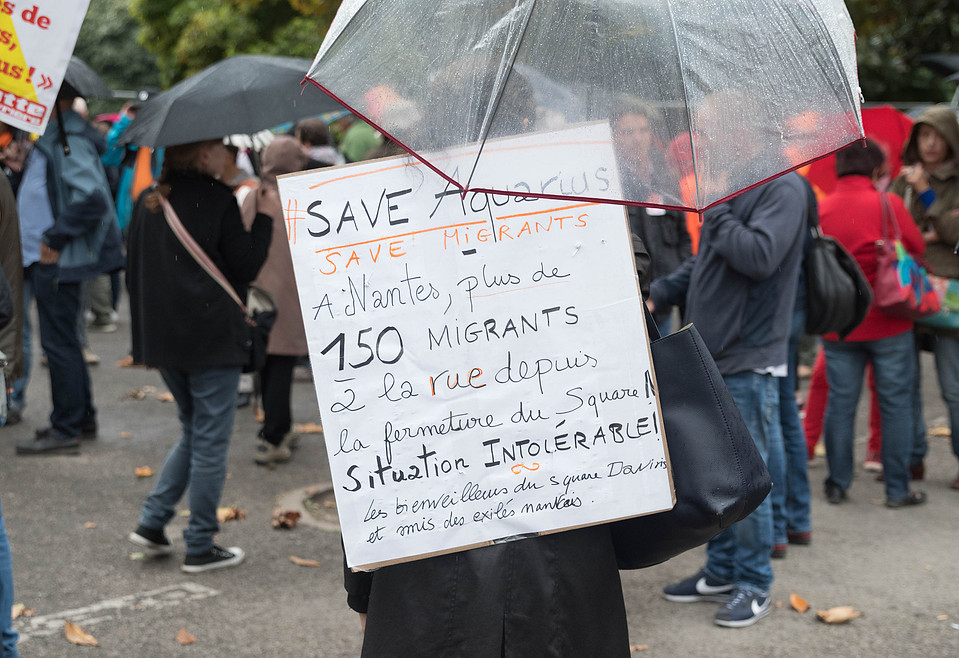 s de
s,
us ! »
tte
#SAVE Aquarius
SAVE MIGRANTS
A Nantes, plus de
150 MIGRANTS
à la rue depuis
la fermeture du Square
Situation INTOLÉRABLE!
Les bienveilleurs du square Daviais
et amis des exilés nantais.